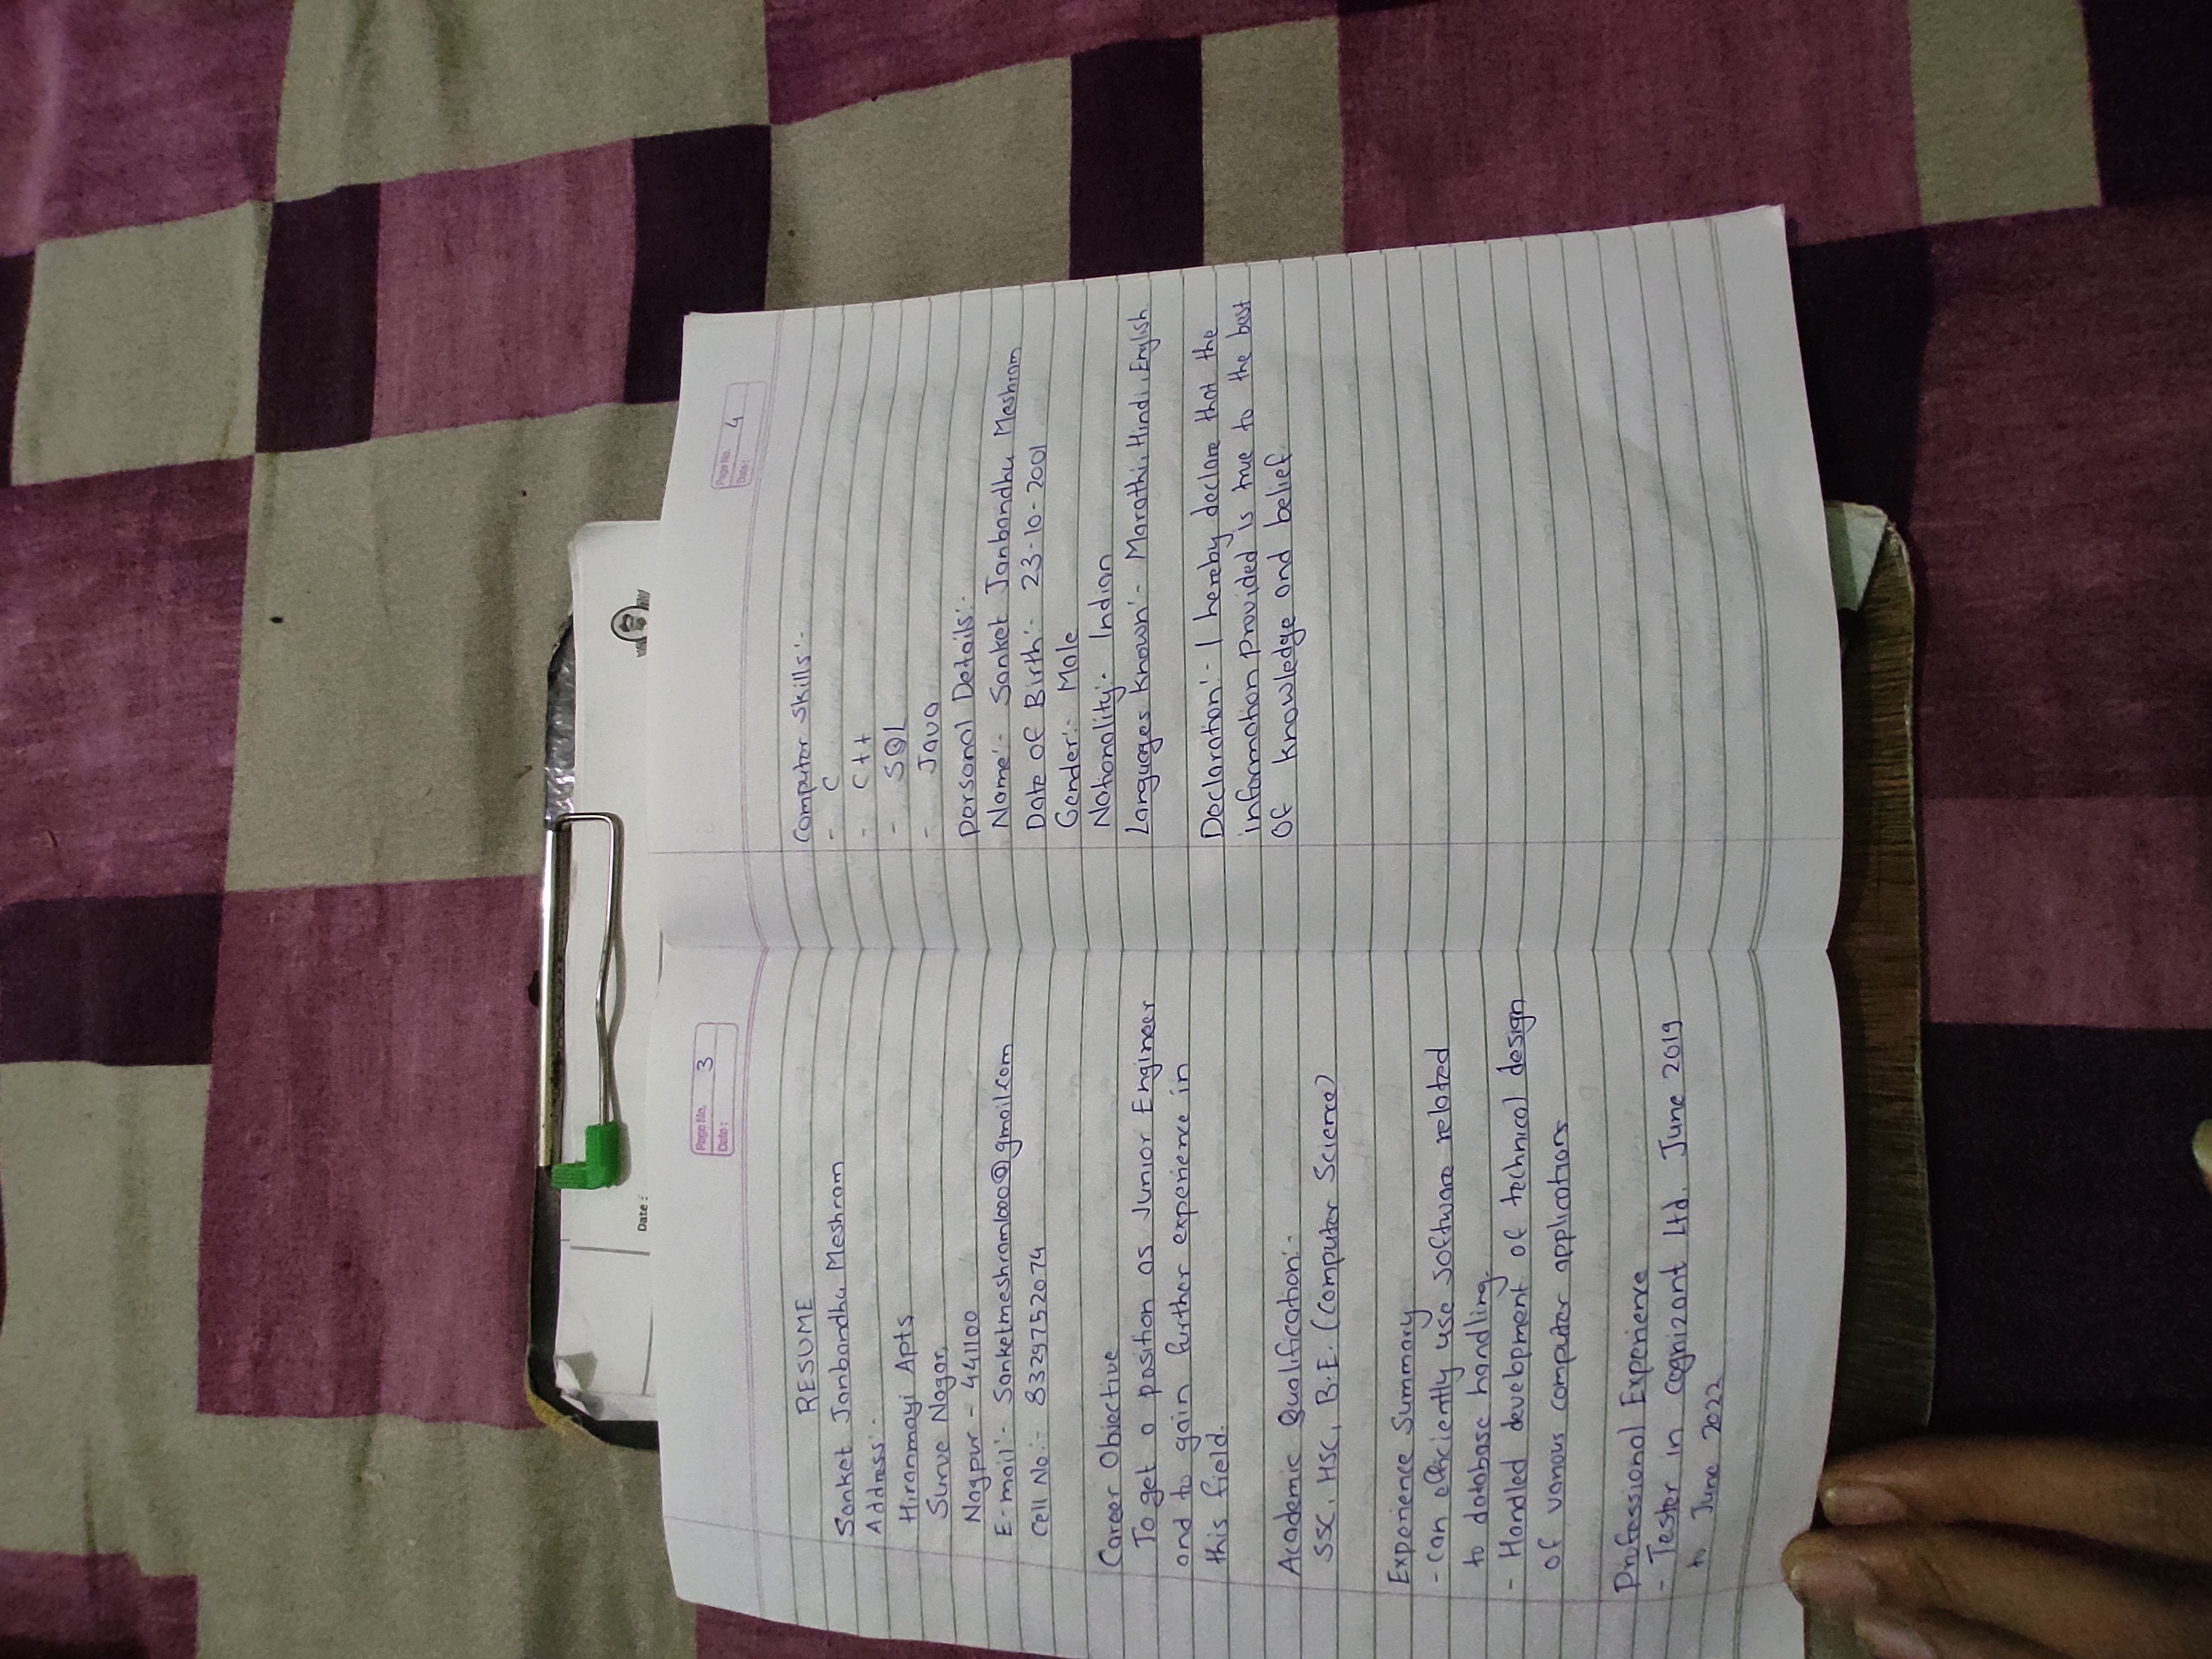 Date :
Page No. 3
Date :
RESUME
Sanket Janbandhu Meshram
Address:-
Hiranmayi Apts,
Surve Nagar,
Nagpur - 441100
E-mail:- Sanketmeshram1000@gmail.com
Cell No:- 8329752074
Career Objective
To get a position as Junior Engineer
and to gain further experience in
this field.
Academic Qualification:-
SSC, HSC, B.E. (Computer Science)
Experience Summary
- Can efficiently use software related
to database handling.
- Handled development of technical design
of various computer applications
Professional Experience
- Tester in Cognizant Ltd. June 2019
to June 2022
Page No. 4
Date :
Computer Skills:-
- C
- C++
- SQL
- Java
Personal Details:-
Name:- Sanket Janbandhu Meshram
Date of Birth:- 23-10-2001
Gender:- Male
Nationality:- Indian
Languages Known:- Marathi, Hindi, English
Declaration:- I hereby declare that the
information provided is true to the best
of knowledge and belief.